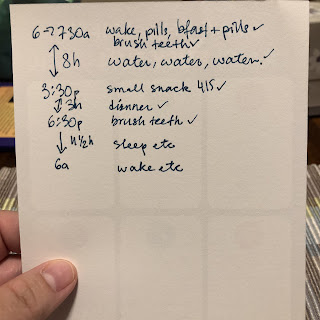 6-7:30a wake, pills, bfast + pills ✓
brush teeth ✓
↕ 8h water, water, water. ✓
3:30p small snack 415 ✓
↕ 3h dinner ✓
6:30p brush teeth ✓
↓ 11 1/2h sleep etc
6a wake etc